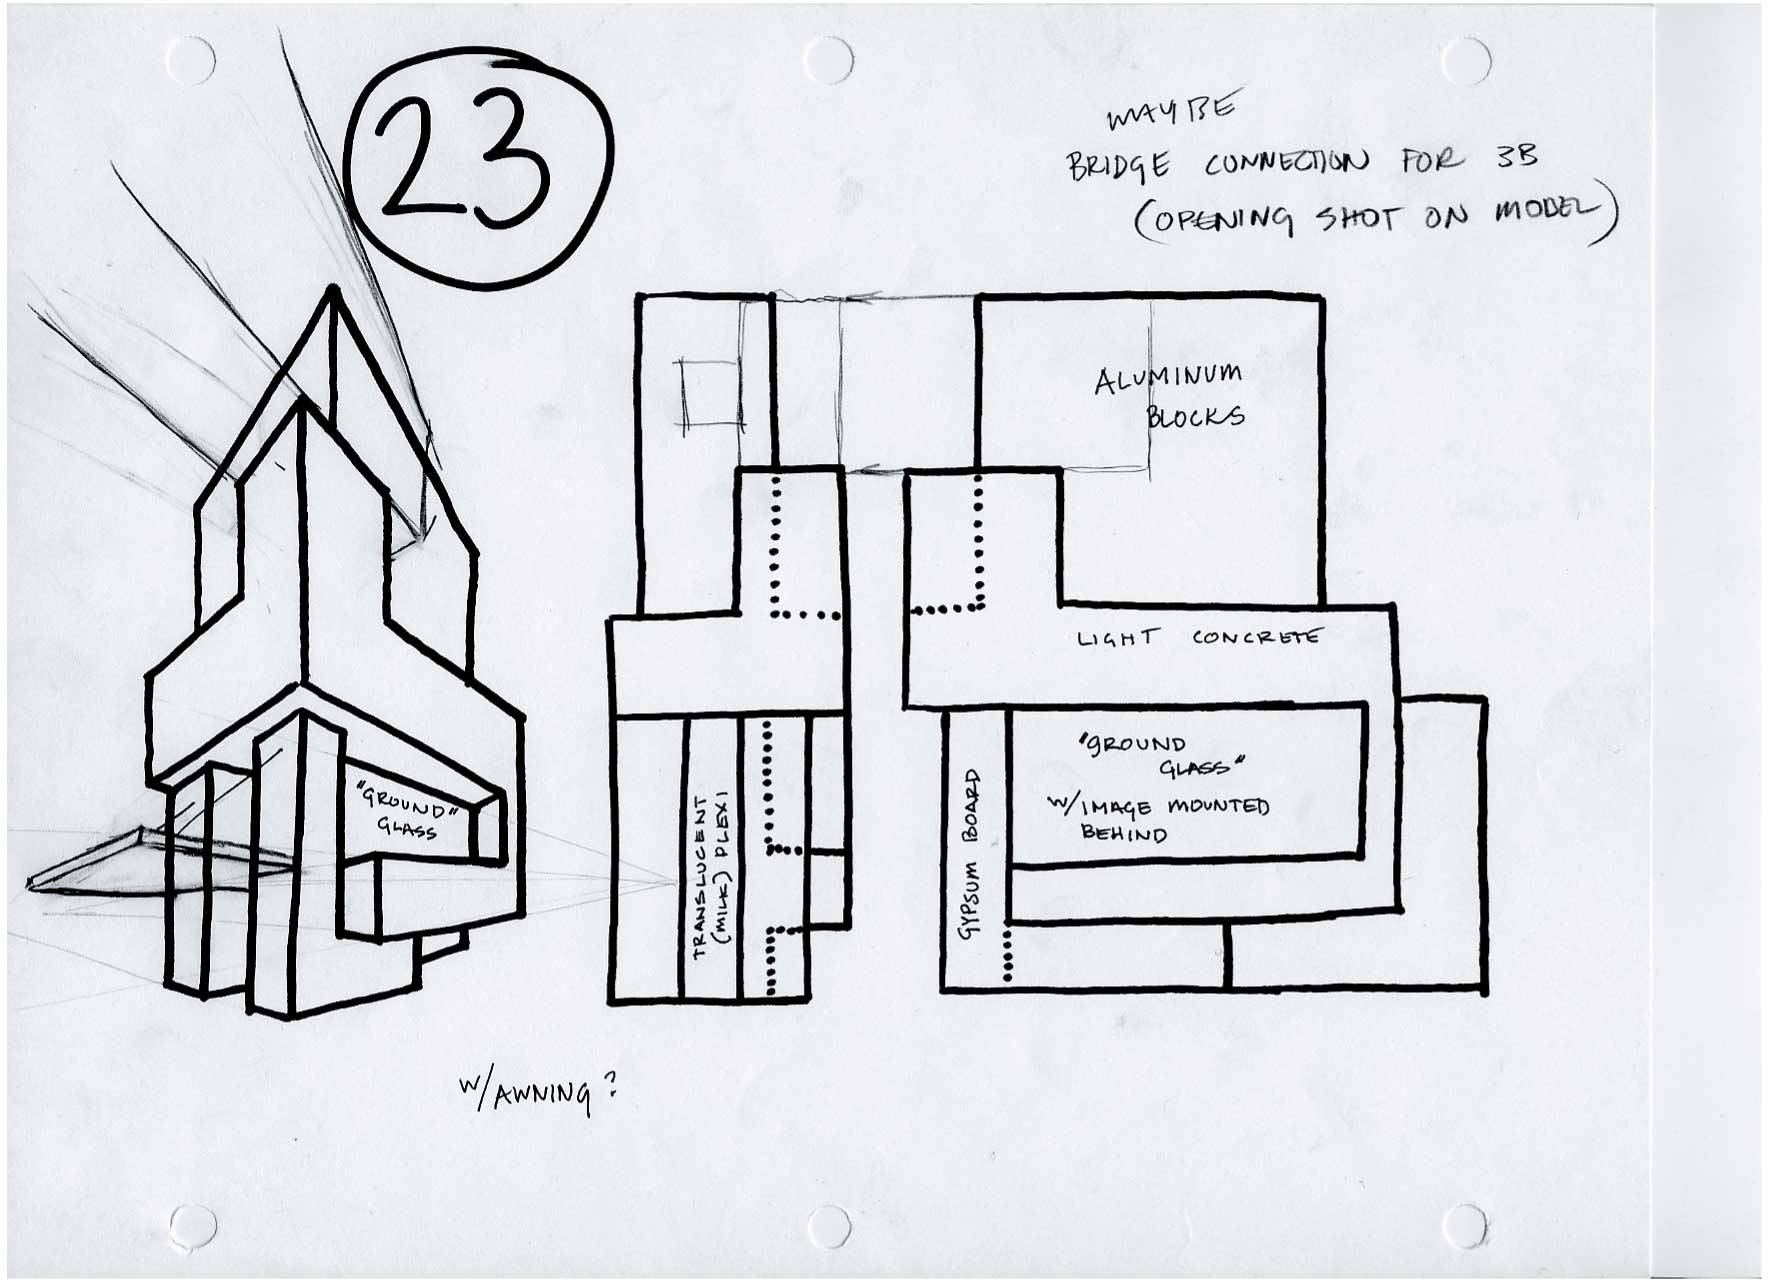 23
MAYBE
BRIDGE CONNECTION FOR 3B
(OPENING SHOT ON MODEL)
ALUMINUM
BLOCKS
LIGHT CONCRETE
"GROUND"
GLASS
TRANSLUCENT
(MILK) PLEXI
GYPSUM BOARD
"GROUND
GLASS"
W/IMAGE MOUNTED
BEHIND
W/AWNING?